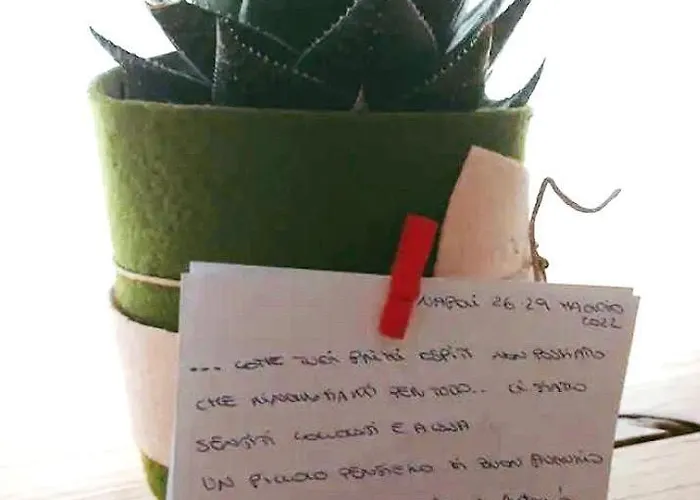 NAPOLI 26-29 MAGGIO
2022
... COME TUOI PRIMI OSPITI NON POSSIAMO
CHE RINGRAZIARTI PER TUTTO.. CI SIAMO
SENTITI COCCOLATI E A CASA
UN PICCOLO PENSIERO DI BUON AUGURIO